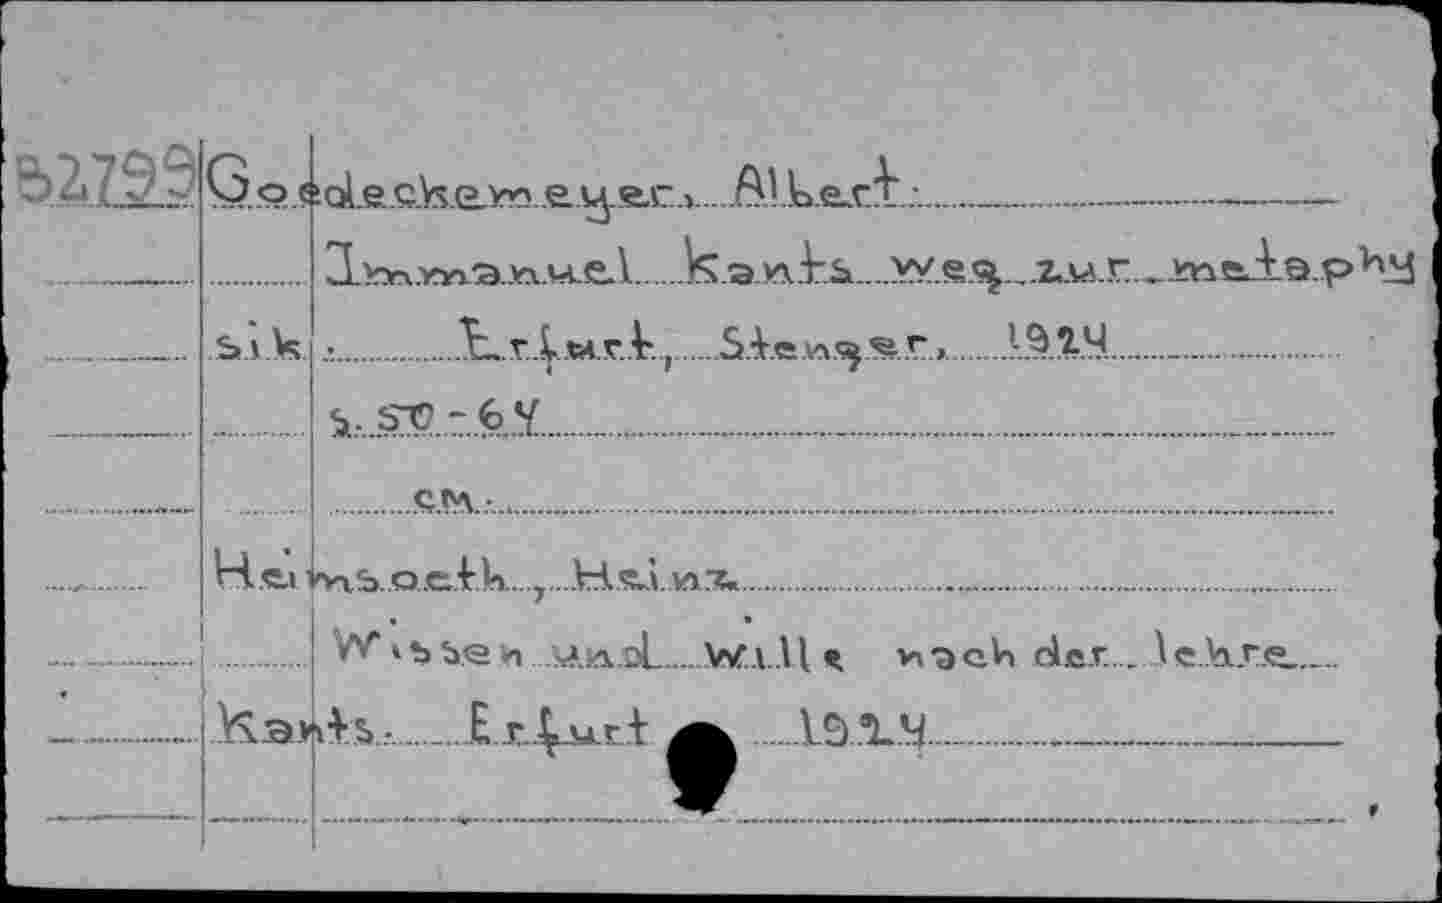 B2799 Goedeckemeyer, Albert:
Immanuel Kants weg zur metaphy
sik. Erfurt, Stenger, 1924
s. 50-64
см.
Heimsoeth, Heinz
Wissen und Wille nach der lehre
Kants. Erfurt 1924